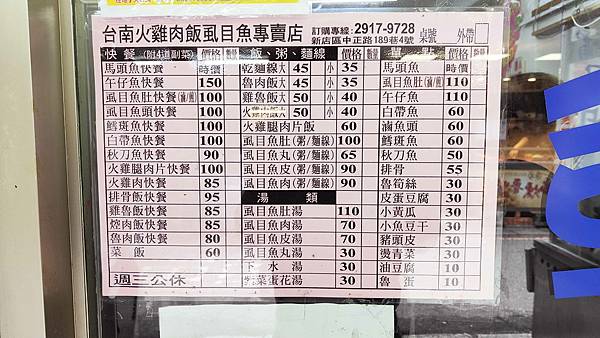 台南火雞肉飯虱目魚專賣店
訂購專線:2917-9728
新店區中正路189巷4號
桌號 外帶□
快餐(附4道副菜) 價格 數量 飯、粥、麵線 價格 數量 單點 價格 數量
馬頭魚快餐 時價 乾麵線 大 45 小 35 馬頭魚 時價
午仔魚快餐 150 魯肉飯 大 45 小 35 虱目魚肚(滷/煎) 110
虱目魚肚快餐(滷/煎) 100 雞魯飯 大 50 小 40 午仔魚 110
虱目魚頭快餐 100 大 50 小 40 白帶魚 60
鱈斑魚快餐 100 火雞腿肉片飯 60 滷魚頭 60
白帶魚快餐 100 虱目魚肚(粥/麵線) 100 鱈斑魚 60
秋刀魚快餐 90 虱目魚丸(粥/麵線) 65 秋刀魚 50
火雞腿肉片快餐 100 虱目魚皮(粥/麵線) 90 排骨 55
火雞肉快餐 85 虱目魚肉(粥/麵線) 90 魯筍絲 30
排骨飯快餐 95 湯類 皮蛋豆腐 30
雞魯飯快餐 85 虱目魚肚湯 110 小黃瓜 30
焢肉飯快餐 85 虱目魚肉湯 70 小魚豆干 30
魯肉飯快餐 80 虱目魚皮湯 70 豬頭皮 30
菜飯 60 虱目魚丸湯 30 燙青菜 30
週三公休 下水湯 30 油豆腐 10
紫菜蛋花湯 30 魯蛋 10